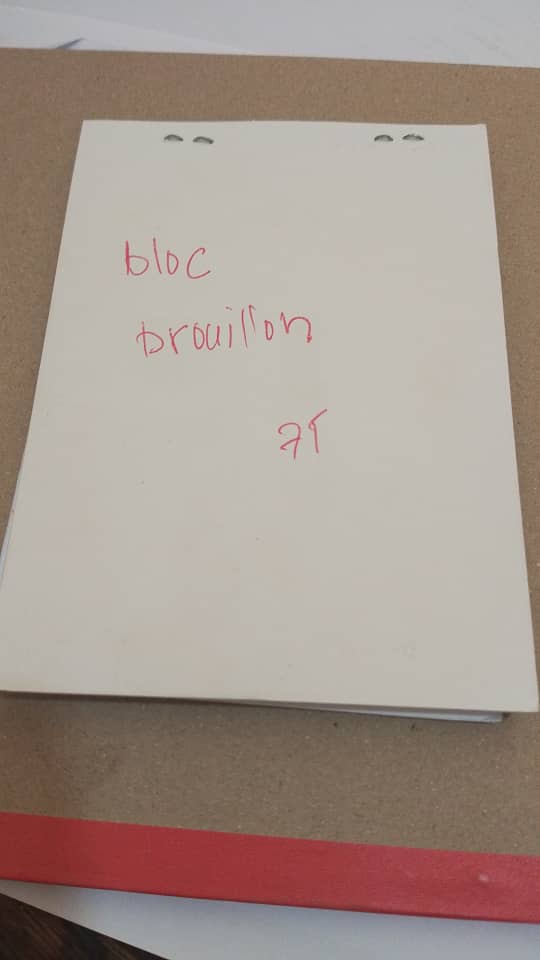 bloc
brouillon